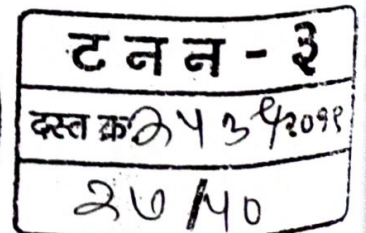 ट न न - ३
दस्त क्र २५३९/२०१९
२७/५०